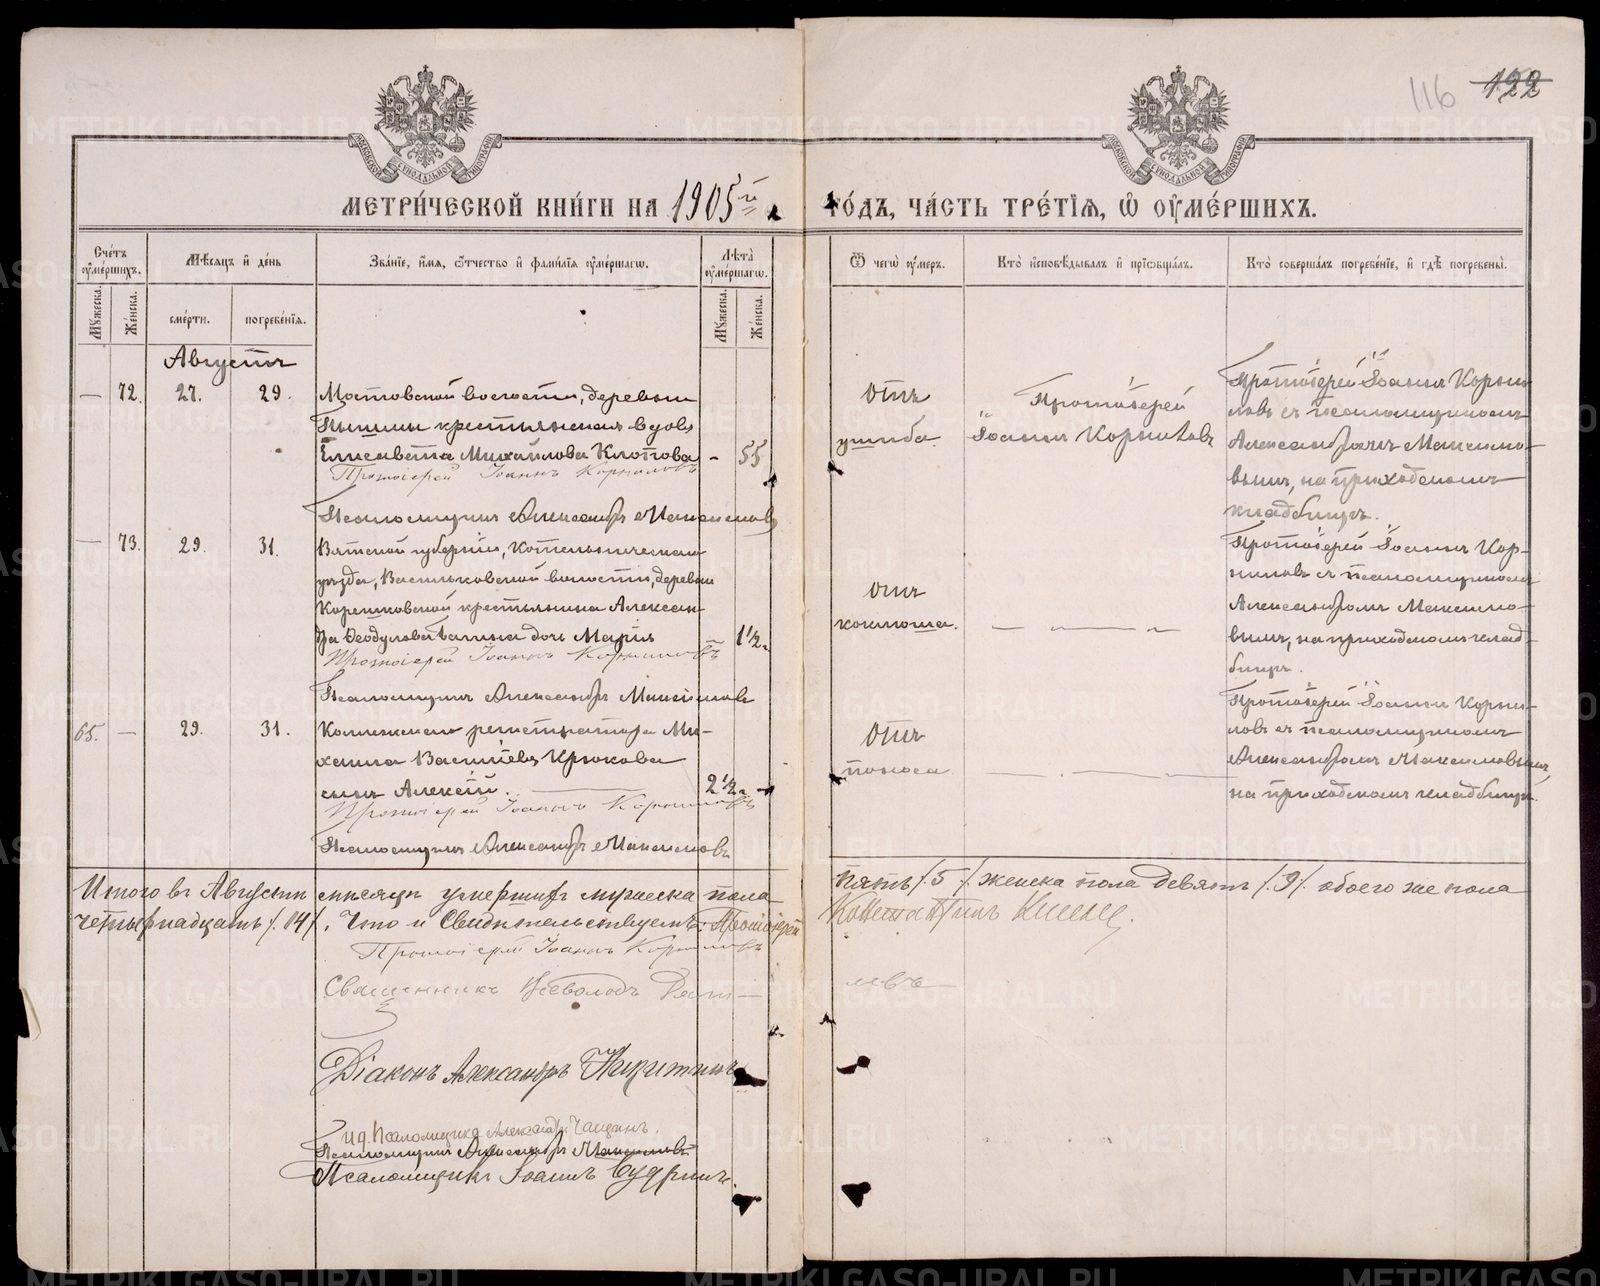 116 122
МЕТРИ́ЧЕСКОЙ КНИ́ГИ НА 1905й
ГО́ДЪ, ЧА́СТЬ ТРЕ́ТІѦ, Ѡ ОУМЕ́РШИХЪ.
МОСКОВСКОЙ СѴНОДАЛЬНОЙ ТИПОГРАФІИ
МОСКОВСКОЙ СѴНОДАЛЬНОЙ ТИПОГРАФІИ
Сче́тъ оуме́ршихъ.
Мѣ́сѧцъ и҆ де́нь
Зва́нїе, и҆́мѧ, ѻ҆́тчество и҆ фами́лїѧ оуме́ршагѡ.
Лѣ́та оуме́ршагѡ.
Ѿ чегѡ̀ оу́меръ.
Кто̀ и҆сповѣ́дывалъ и҆ прїѡбща́лъ.
Кто̀ соверша́лъ погребе́нїе, и҆ гдѣ̀ погребены̀.
Мꙋ́жеска.
Же́нска.
сме́рти.
погребе́нїѧ.
Мꙋ́жеска.
Же́нска.
Августъ
— 72. 27. 29.
Мостовской волости, деревни
Пышмы крестьянская вдова
Елисавета Михайлова Клотова - 55
Протоіерей Іоаннъ Корниловъ
Псаломщикъ Александръ Максимовъ
Отъ
ушиба.
Протоіерей
Іоаннъ Корниловъ
Протоіерей Іоаннъ Корни-
ловъ съ псаломщикомъ
Александромъ Максимо-
вымъ, на приходскомъ
кладбищѣ.
— 73. 29. 31.
Вятской губерніи, Котельническаго
уѣзда, Васильковской волости, деревни
Корешковской крестьянина Алексан-
дра Ѳеодулова дочь Марія 1½.
Протоіерей Іоаннъ Корниловъ
Псаломщикъ Александръ Максимовъ
Отъ
коклюша.
— „ — „ —
Протоіерей Іоаннъ Кор-
ниловъ съ псаломщикомъ
Александромъ Максимо-
вымъ, на приходскомъ клад-
бищѣ.
65. — 29. 31.
Коллежскаго регистратора Ми-
хаила Васильева Крюкова
сынъ Алексій. 2½. -
Протоіерей Іоаннъ Корниловъ
Псаломщикъ Александръ Максимовъ
Отъ
поноса
Протоіерей Іоаннъ Корни-
ловъ съ псаломщикомъ
Александромъ Максимовымъ,
на приходскомъ кладбищѣ.
Итого въ Августѣ мѣсяцѣ умершихъ мужеска пола пять /.5./ женска пола девять /.9./ обоего же пола
четырнадцать /.14./. Что и свидѣтельствуемъ: Протоіерей Константинъ
Протоіерей Іоаннъ Корниловъ
Священникъ Всеволодъ
Діаконъ Александръ Никитинъ
И.д. Псаломщика Александръ
Псаломщикъ Александръ Максимовъ
Псаломщикъ Іоаннъ Будринъ.
METRIKI.GASO-URAL.RU